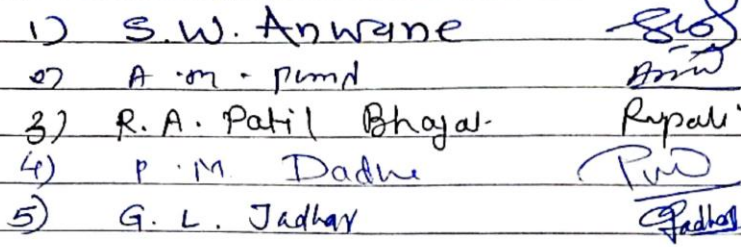 1) S.W. Anwane
2) A.M.
3) R.A. Patil Bhojar Rupali
4) P.M. Dadhe
5) G. L. Jadhav Jadhav